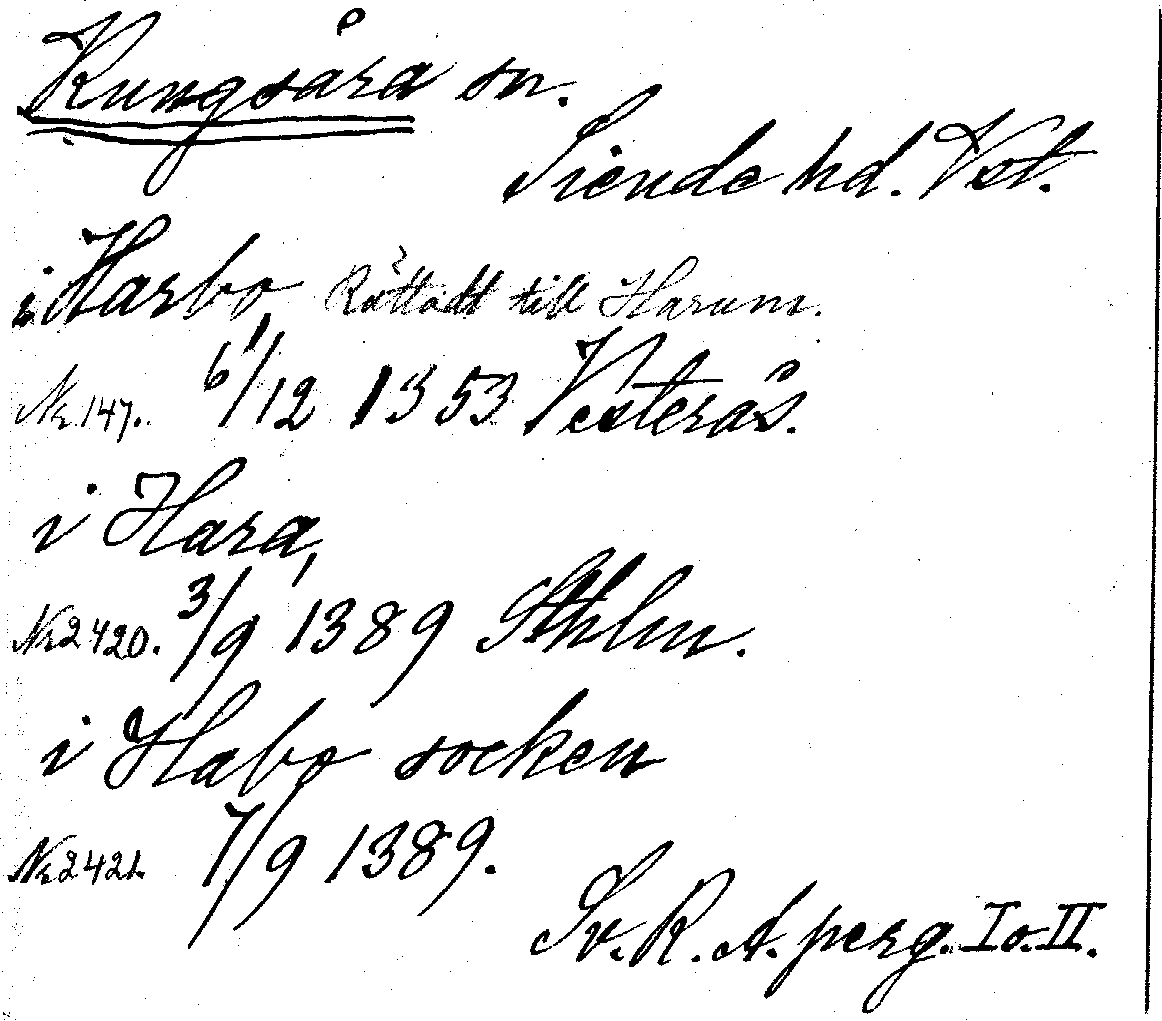 Kungsåra sn.
Siende hd. Vst.
i Harbo, Rättadt till Harum.
Nr 147. 6/12 1353 Vesterås.
i Hara,
Nr 2420. 3/9 1389 Sthlm.
i Habo socken
Nr 2421. 7/9 1389.
Sv. R. A. perg. I o. II.